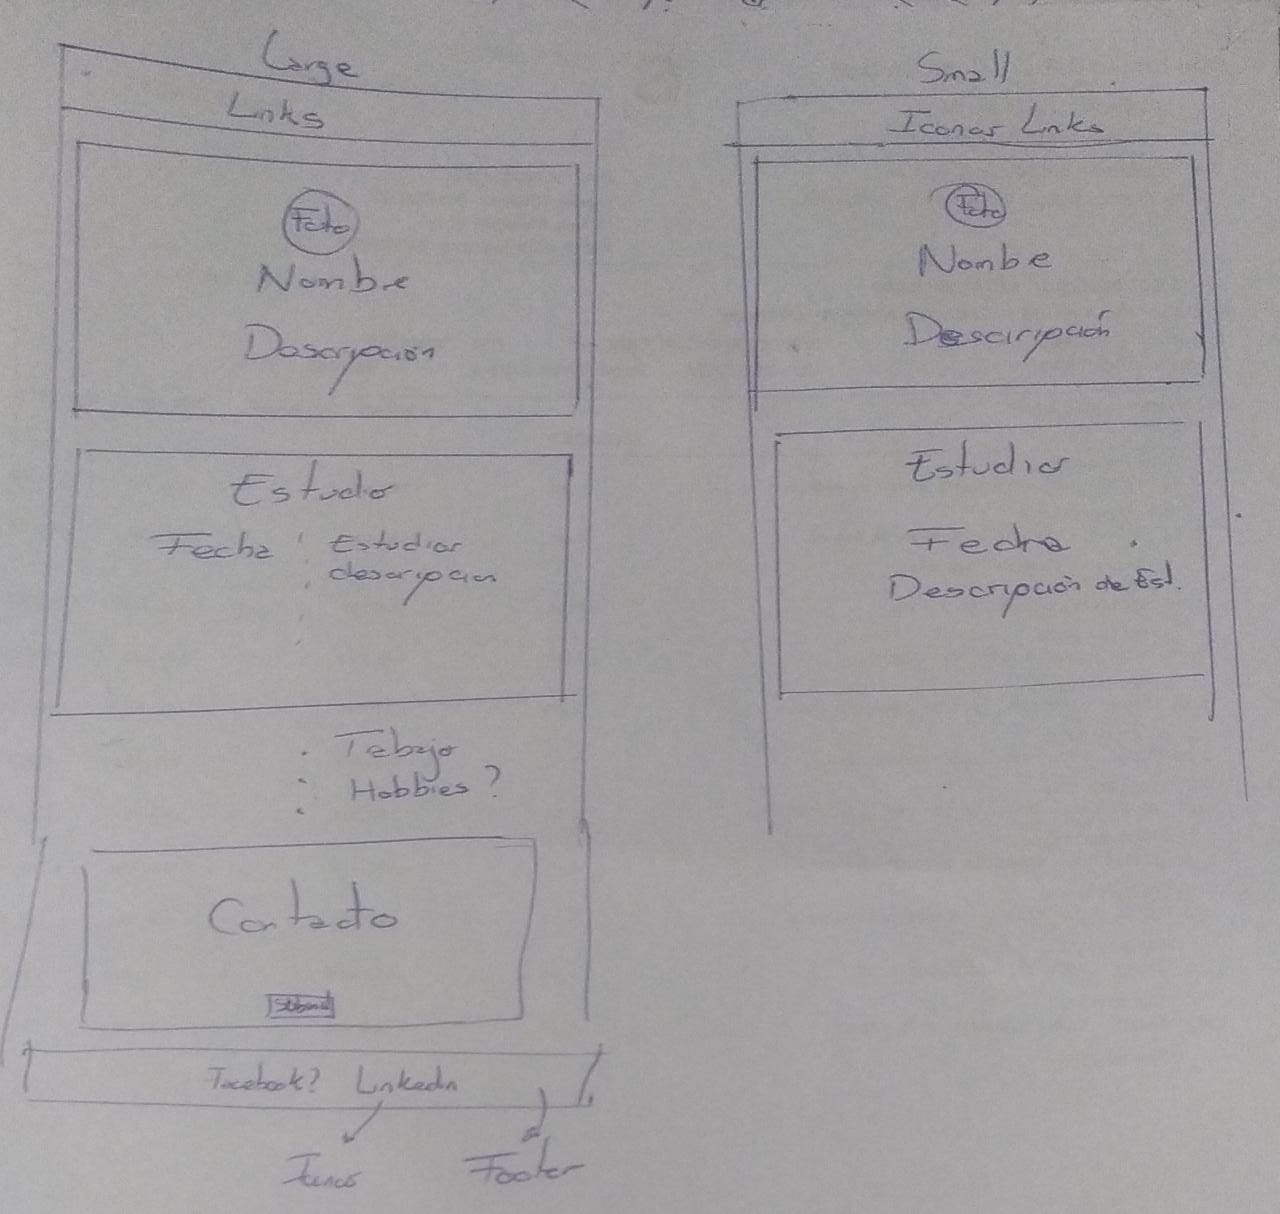 Large
Links
Foto
Nombre
Descripción
Estudio
Fecha
Estudios
descripcion
Trabajo
Hobbies?
Contacto
Submit
Facebook? Linkedn
Iconos
Footer
Small
Iconos Links
Foto
Nombe
Desciripción
Estudios
Fecha
Descripción de Est.